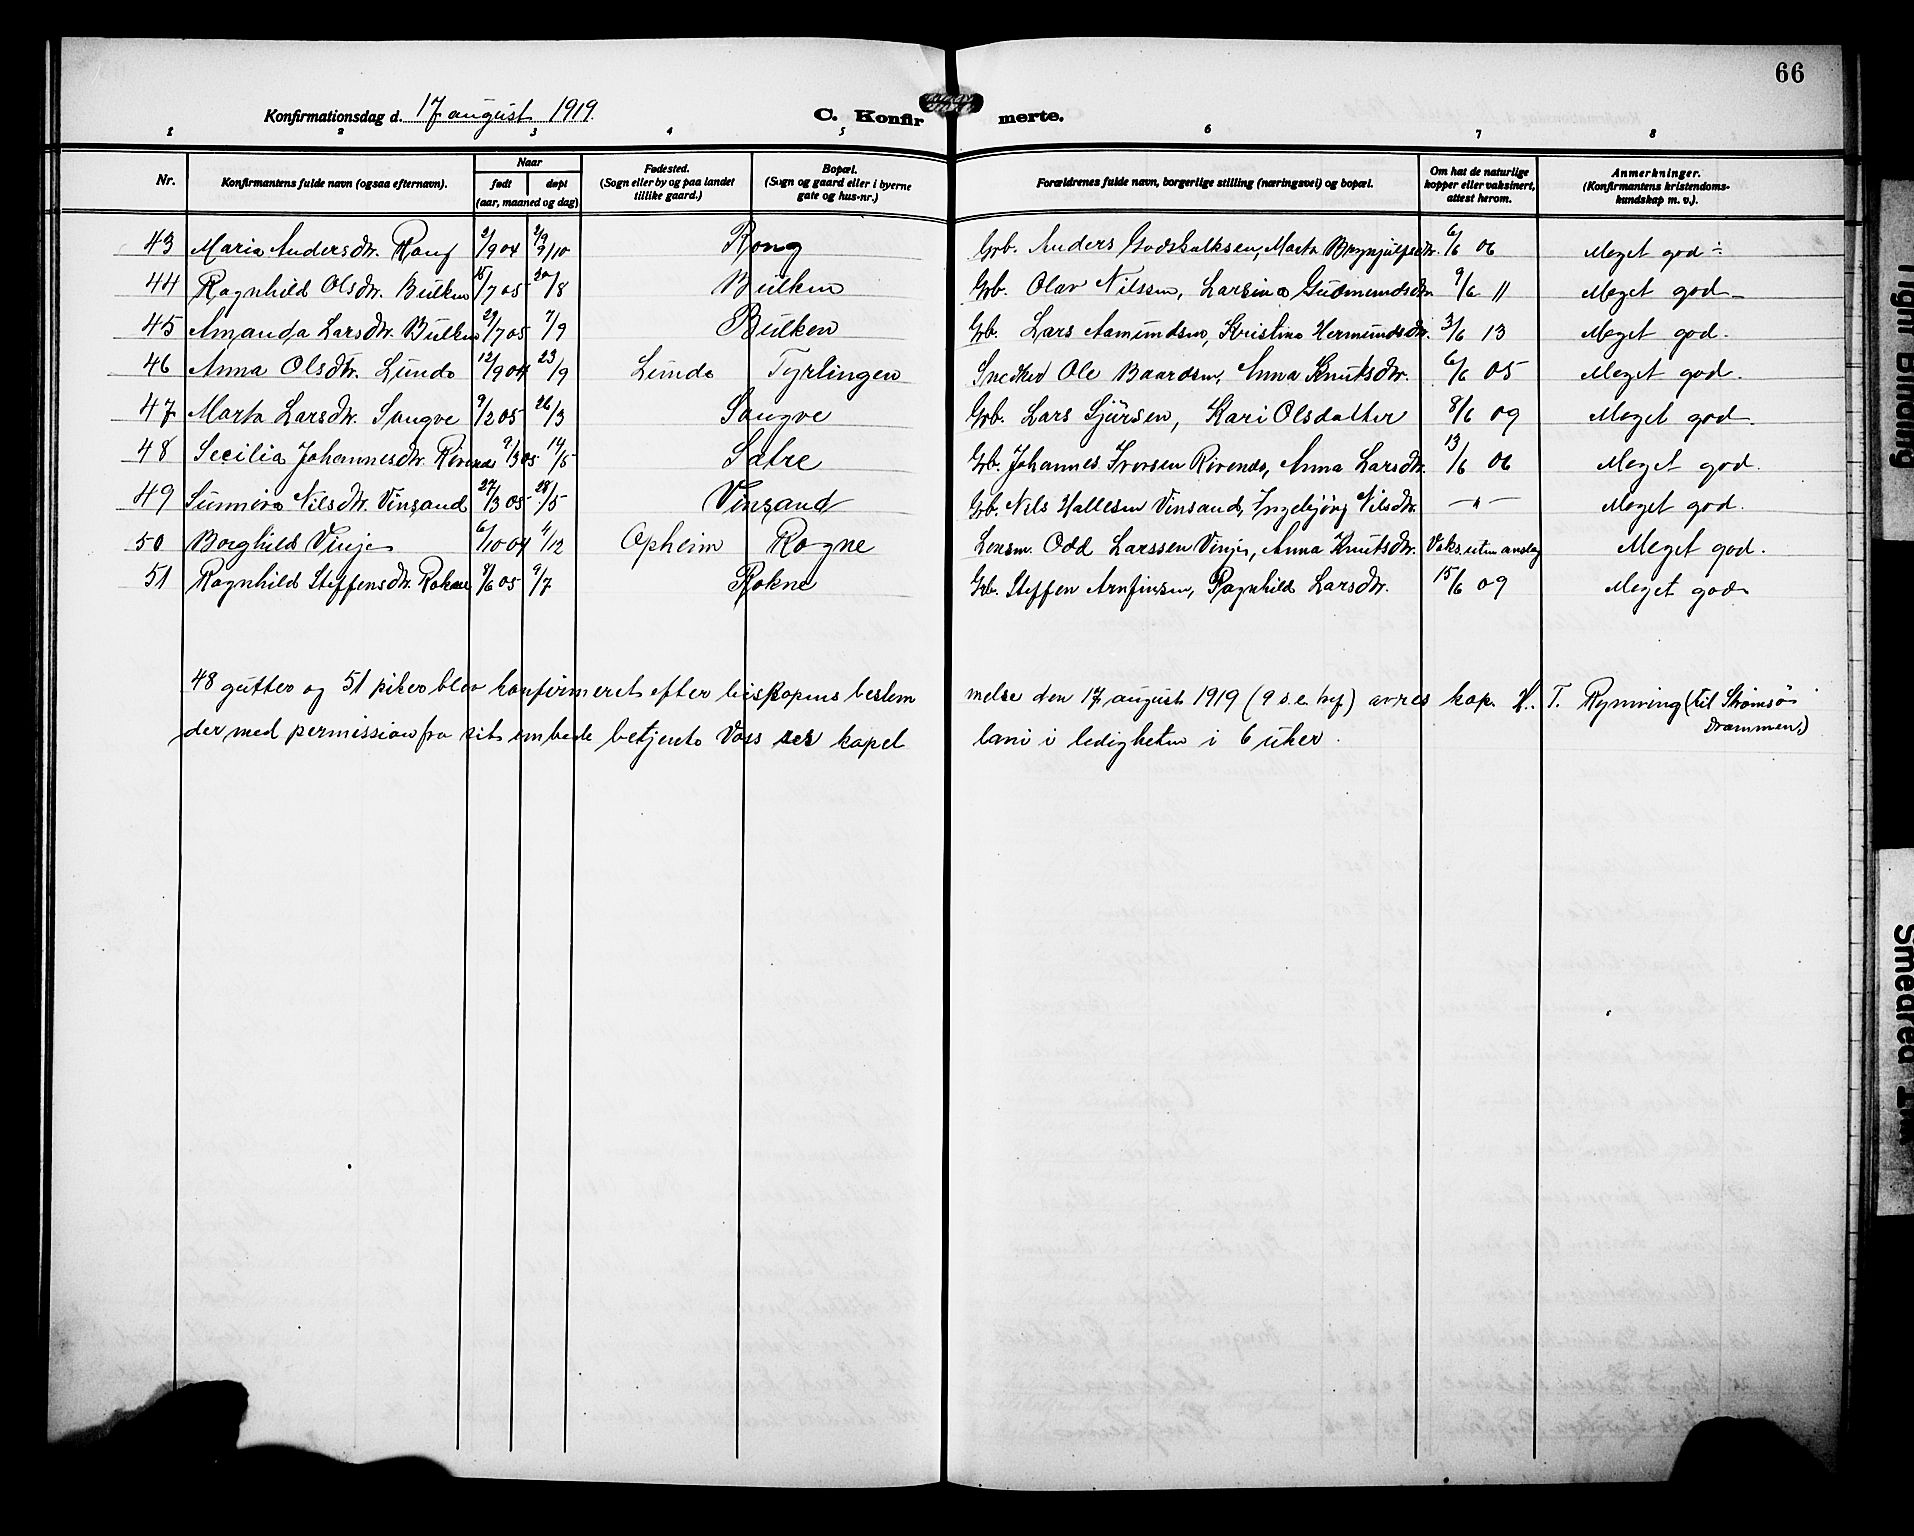 66
Konfirmationsdag d. 17 august 1919. C. Konfirmerte.
1 2 3 4 5 6 7 8
Nr. Konfirmantens fulde navn (ogsaa efternavn). Naar født døpt (aar, maaned og dag) Fødested. (Sogn eller by og paa landet tillike gaard.) Bopæl. (Sogn og gaard eller i byerne gate og hus-nr.) Forældrenes fulde navn, borgerlige stilling (næringsvei) og bopæl. Om hat de naturlige kopper eller vaksinert, attest herom. Anmerkninger. (Konfirmantens kristendoms-kundskap m. v.).
43 Maria Andersdtr. Rong 2/9 04 2/10 Rong Grb. Anders Godskalksen, Marta Brynjulfsdtr. 6/6 06 Meget god ÷
44 Ragnhild Olsdtr. Bulken 18/7 05 20/8 Bulken Grb. Olav Nilsen, Larsina Gudmundsdtr. 9/6 11 Meget god -
45 Amanda Larsdtr. Bulken 29/7 05 7/9 Bulken Grb. Lars Aamundsen, Kristina Hermundsdtr. 3/6 13 Meget god.
46 Anna Olsdtr. Lunde 12/9 04 23/9 Lunde Tyrlingen Snedker Ole Baardsen, Anna Knutsdtr. 6/6 05 Meget god.
47 Marta Larsdtr. Saugve 9/2 05 26/3 Saugve Grb. Lars Sjursen, Kari Olsdatter 8/6 09 Meget god.
48 Secilia Johannesdtr. Rørende 9/3 05 14/5 Satre Grb. Johannes Iversen Rørende, Anna Larsdtr. 13/6 06 Meget god.
49 Sunniva Nilsdtr. Vinsand 27/3 05 28/5 Vinsand Grb. Nils Hallesen Vinsand, Ingebjørg Nilsdtr. —"— Meget god.
50 Borghild Vinje 6/10 04 4/12 Opheim Rogne Lensm. Odd Larssen Vinje, Anna Knutsdtr. Vaks. uten anslag Meget god.
51 Ragnhild Steffensdtr. Rokne 8/6 05 9/7 Rokne Grb. Steffen Arnfinsen, Ragnhild Larsdtr. 15/6 09 Meget god
48 gutter og 51 piker blev konfirmeret efter biskopens bestemmelse den 17 august 1919 (9 s. e. tref) av res kap. H. T. Rynning (til Strømsø
Drammen)
der med permission fra sit embede betjente Voss res kapellani i ledigheten i 6 uker.
Tight Binding
Smeared Ink